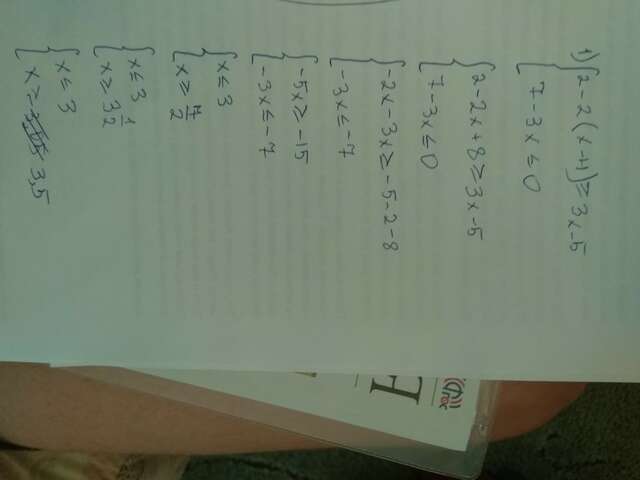 1) { 2-2(x-4)≥3x-5
7-3x≤0
{ 2-2x+8≥3x-5
7-3x≤0
{ -2x-3x≥-5-2-8
-3x≤-7
{ -5x≥-15
-3x≤-7
{ x≤3
x≥7/2
{ x≤3
x≥3 1/2
{ x≤3
x≥ 3,5